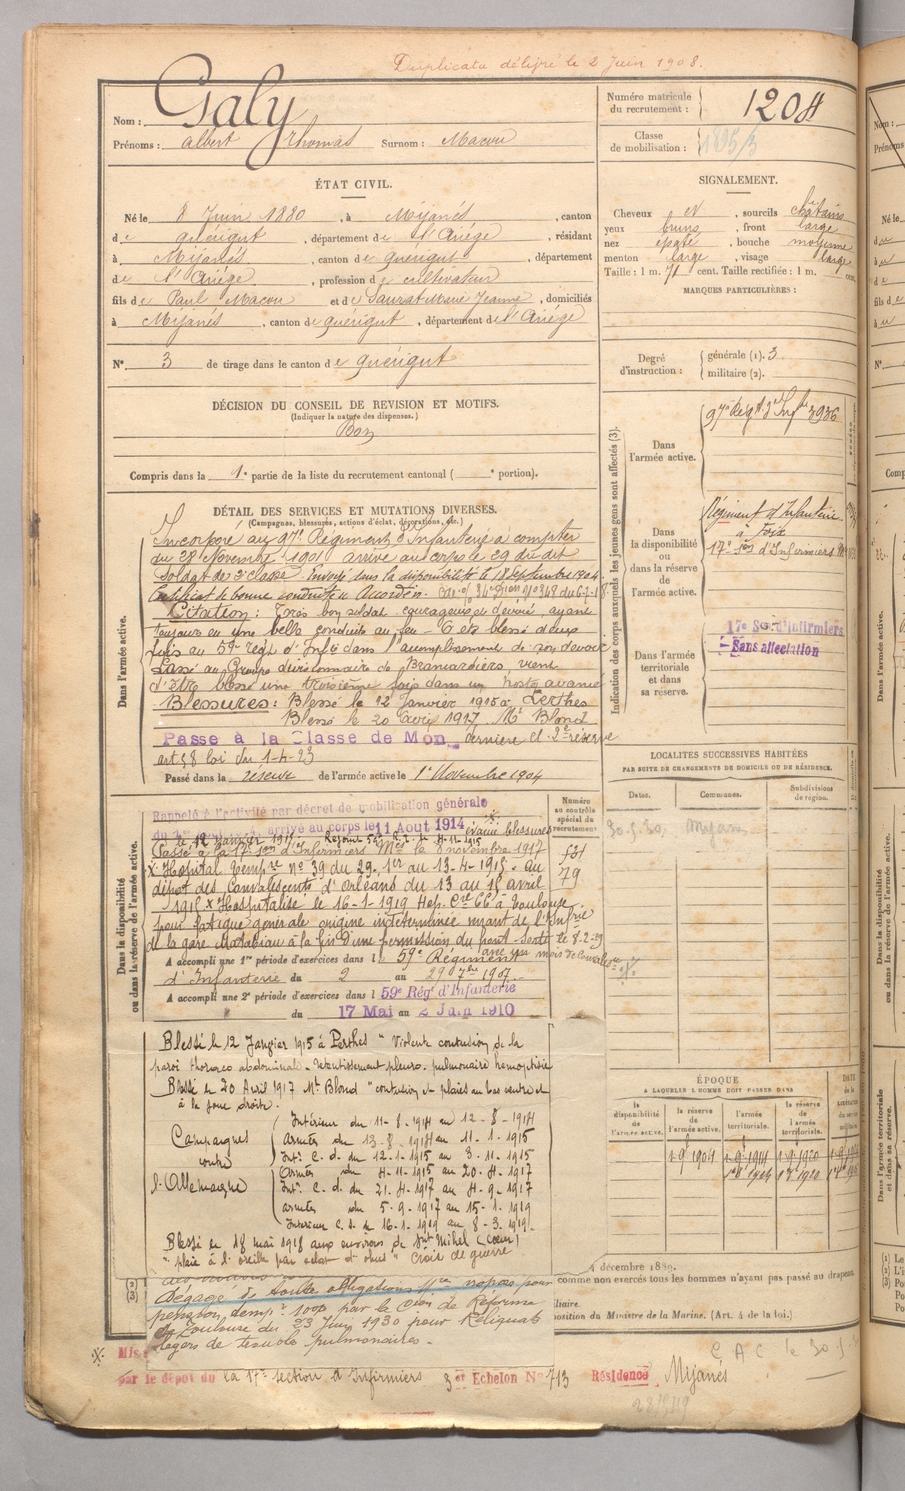 Duplicata délivré le 2 Juin 1908.
Nom : Galy
Prénoms : Albert Thomas Surnom : Macou
Numéro matricule du recrutement : 1204
Classe de mobilisation : 1895/3
ÉTAT CIVIL.
Né le 8 Juin 1880, à Mijanès, canton
de Quérigut, département de l'Ariége, résidant
à Mijanès, canton de Quérigut, département
de l'Ariége, profession de cultivateur
fils de Paul Macou et de Saurat Marie Jeanne, domiciliés
à Mijanès, canton de Quérigut, département de l'Ariége
N° 3 de tirage dans le canton de Quérigut
SIGNALEMENT.
Cheveux et, sourcils châtains
yeux bruns, front large
nez épaté, bouche moyenne
menton large, visage large
Taille : 1 m. 71 cent. Taille rectifiée : 1 m. cent.
MARQUES PARTICULIÈRES :
Degré d'instruction : générale (1). 3
militaire (2).
DÉCISION DU CONSEIL DE REVISION ET MOTIFS.
(Indiquer la nature des dispenses.)
Bon
Compris dans la 1e partie de la liste du recrutement cantonal ( e portion).
DÉTAIL DES SERVICES ET MUTATIONS DIVERSES.
(Campagnes, blessures, actions d'éclat, décorations, etc.)
Dans l'armée active.
Incorporé au 97e Régiment d'Infanterie à compter
du 28 Novembre 1901 arrivé au corps le 29 du dit
Soldat de 2e classe. Envoyé dans la disponibilité le 18 septembre 1904
Certificat de bonne conduite "Accordé".
Citation : Très bon soldat courageux et dévoué, ayant
toujours eu une belle conduite au feu - A été blessé deux
fois au 59e Régt d'Inf. dans l'accomplissement de son devoir
Passé au Groupe divisionnaire de Brancardiers, vient
d'être blessé une troisième fois dans un poste avancé
Blessures : Blessé le 12 Janvier 1915 à Perthes
Blessé le 20 Avril 1917 Mt Blond
Passé à la Classe de Mon dernière et 2e réserve
art 58 loi du 1-4-23
Passé dans la réserve de l'armée active le 1er Novembre 1904
Indication des corps auxquels les jeunes gens sont affectés (3).
Dans l'armée active.
97e Régt d'Infie 3936
Dans la disponibilité ou dans la réserve de l'armée active.
Régiment d'Infanterie
à Foix
17e son d'Infirmiers
Dans l'armée territoriale et dans sa réserve.
17e Son d'Infirmiers
Sans affectation
LOCALITÉS SUCCESSIVES HABITÉES
PAR SUITE DE CHANGEMENTS DE DOMICILE OU DE RÉSIDENCE.
Dates. Communes. Subdivisions de région.
30.5.30. Mijanès
Dans la disponibilité ou dans la réserve de l'armée active.
Numéro au contrôle spécial du recrutement
Rappelé à l'activité par décret de mobilisation générale
arrivé au corps le 11 Aout 1914 évacué blessures
le 12 Janvier 1915. Rejoint 59e R.I. le 4.11.1915
Passé à la 17e son d'Infirmiers Mres le 8 novembre 1917
Hopital Tempre no 39 du 29.1er au 13-4-1918 - au
dépôt des Convalescents d'Orléans du 13 au 18 avril
1918 x Hospitalisé le 16-1-1919 Hop. Cre 66 à Toulouse
pour fatigue générale origine indéterminée venant de l'Infrie
de la gare Matabiau à la fin d'une permission du front - sorti le 8-2-19
79
A accompli une 1re période d'exercices dans le 59e Régiment
d'Infanterie du 2 au 29 7bre 1907
A accompli une 2e période d'exercices dans l 59e Régt d'Infanterie
du 17 Mai au 2 Juin 1910
Blessé le 12 Janvier 1915 à Perthes "Violente contusion de la
paroi thoraco abdominale - retentissement pleuro-pulmonaire hemoptisie
Blessé le 20 Avril 1917 Mt Blond "contusion et plaies au bas ventre et
à la joue droite.
Campagnes contre l'Allemagne
Intérieur du 11-8-1914 au 12-8-1914
Armées du 13-8-1914 au 11-1-1915
Intr. C. d. du 12-1-1915 au 3-11-1915
Armées du 4-11-1915 au 20-4-1917
Intr. C. d. du 21-4-1917 au 4-9-1917
armées du 5-9-1917 au 15-1-1919
Intérieur C. d. du 16-1-1919 au 8-3-1919.
Blessé le 18 mai 1918 aux environs de Snt Mihel (Cœur)
"plaie à l'oreille par éclat et obus" Croix de guerre
Dégagé de toute obligations
pension temp. 100% par la Con de Réforme
de Toulouse du 23 Juin 1930 pour Reliquats
légers de tubercule pulmonaires.
ÉPOQUE
A LAQUELLE L'HOMME DOIT PASSER DANS
la disponibilité de l'armée active. la réserve de l'armée active. l'armée territoriale. la réserve de l'armée territoriale. DATE de la
1-9e 1904 1-9e 1914 1-9e 1920
4 décembre 1889.
comme non exercés tous les hommes n'ayant pas passé au drapeau
position du Ministre de la Marine. (Art. 4 de la loi.)
C A C le 30.5.
Mis
par le dépôt du la 17e section d'Infirmiers 3 et Echelon No 713 Résidence Mijanès